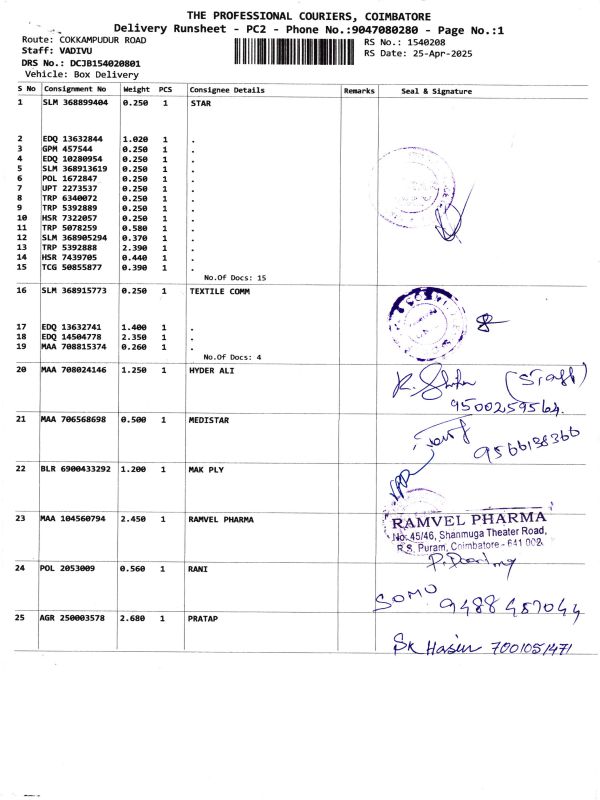 THE PROFESSIONAL COURIERS, COIMBATORE
Delivery Runsheet - PC2 - Phone No.:9047080280 - Page No.:1
Route: COKKAMPUDUR ROAD
RS No.: 1540208
Staff: VADIVU
RS Date: 25-Apr-2025
DRS No.: DCJB154020801
Vehicle: Box Delivery
S No Consignment No Weight PCS Consignee Details Remarks Seal & Signature
1 SLM 368899404 0.250 1 STAR
2 EDQ 13632844 1.020 1 .
3 GPM 457544 0.250 1 .
4 EDQ 10280954 0.250 1 .
5 SLM 368913619 0.250 1 .
6 POL 1672847 0.250 1 .
7 UPT 2273537 0.250 1 .
8 TRP 6340072 0.250 1 .
9 TRP 5392889 0.250 1 .
10 HSR 7322057 0.250 1 .
11 TRP 5078259 0.580 1 .
12 SLM 368905294 0.370 1 .
13 TRP 5392888 2.390 1 .
14 HSR 7439705 0.440 1 .
15 TCG 50855877 0.390 1 .
No.Of Docs: 15
16 SLM 368915773 0.250 1 TEXTILE COMM
17 EDQ 13632741 1.400 1 .
18 EDQ 14504778 2.350 1 .
19 MAA 708815374 0.260 1 .
No.Of Docs: 4
20 MAA 708024146 1.250 1 HYDER ALI
(Staff)
9500259564.
21 MAA 706568698 0.500 1 MEDISTAR
9566138366
22 BLR 6900433292 1.200 1 MAK PLY
23 MAA 104560794 2.450 1 RAMVEL PHARMA
RAMVEL PHARMA
No: 45/46, Shanmuga Theater Road,
R.S. Puram, Coimbatore - 641 002.
24 POL 2053009 0.560 1 RANI
SOMU 9488457044
25 AGR 250003578 2.680 1 PRATAP
SK Hasin 7001051471